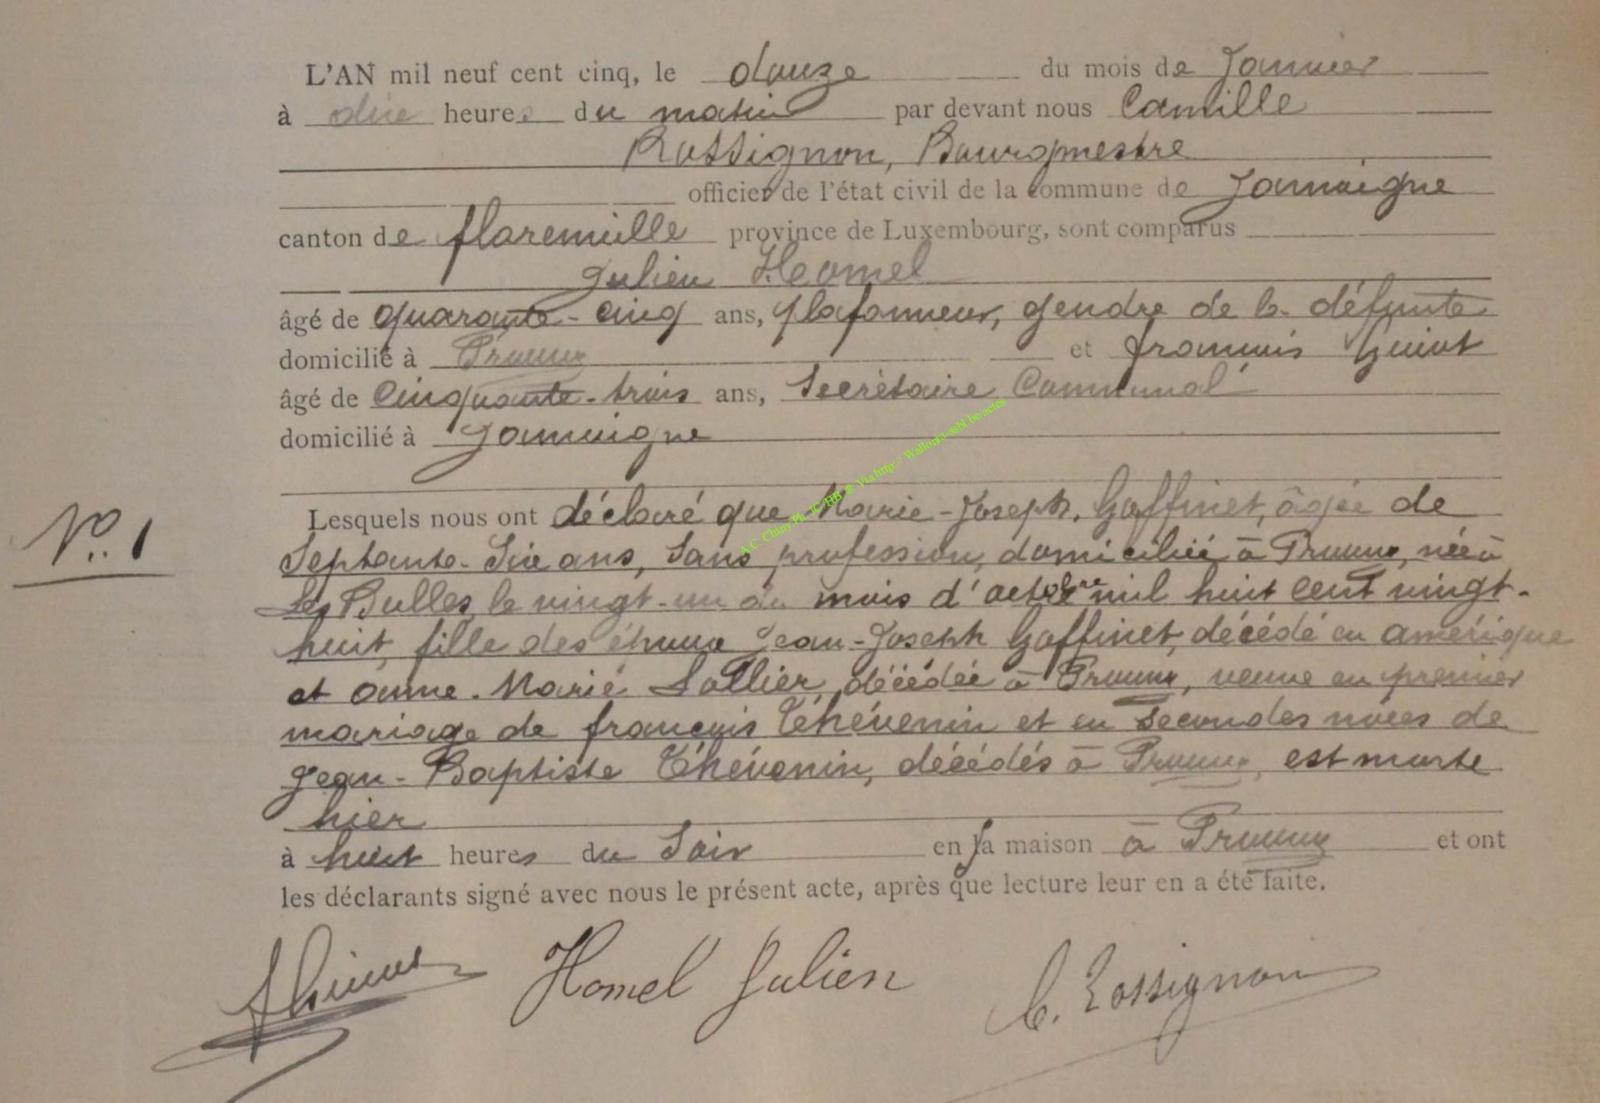 L'AN mil neuf cent cinq, le douze du mois de Janvier
à dix heures du matin par devant nous Camille
Rossignon, Bourgmestre
officier de l'état civil de la commune de Jamoigne
canton de florenville province de Luxembourg, sont comparus
Julien Hamel
âgé de quarante-cinq ans, plafonneur, gendre de la défunte
domicilié à Prouvy et françois Guiot
âgé de cinquante-trois ans, Secrétaire Communal
domicilié à Jamoigne
N°. 1
Lesquels nous ont déclaré que Marie-Joseph Goffinet, âgée de
Septante-Six ans, sans profession, domiciliée à Prouvy, née à
Les Bulles le vingt-un du mois d'octobre mil huit cent vingt-
huit, fille des époux Jean-Joseph Goffinet, décédé en amérique
et anne-Marie Lallier, décédée à Prouvy, veuve en premier
mariage de françois Thévenin et en secondes noces de
Jean-Baptiste Thévenin, décédés à Prouvy, est morte
hier
à huit heures du Soir en sa maison à Prouvy et ont
les déclarants signé avec nous le présent acte, après que lecture leur en a été faite.
Hamel Julien C. Rossignon